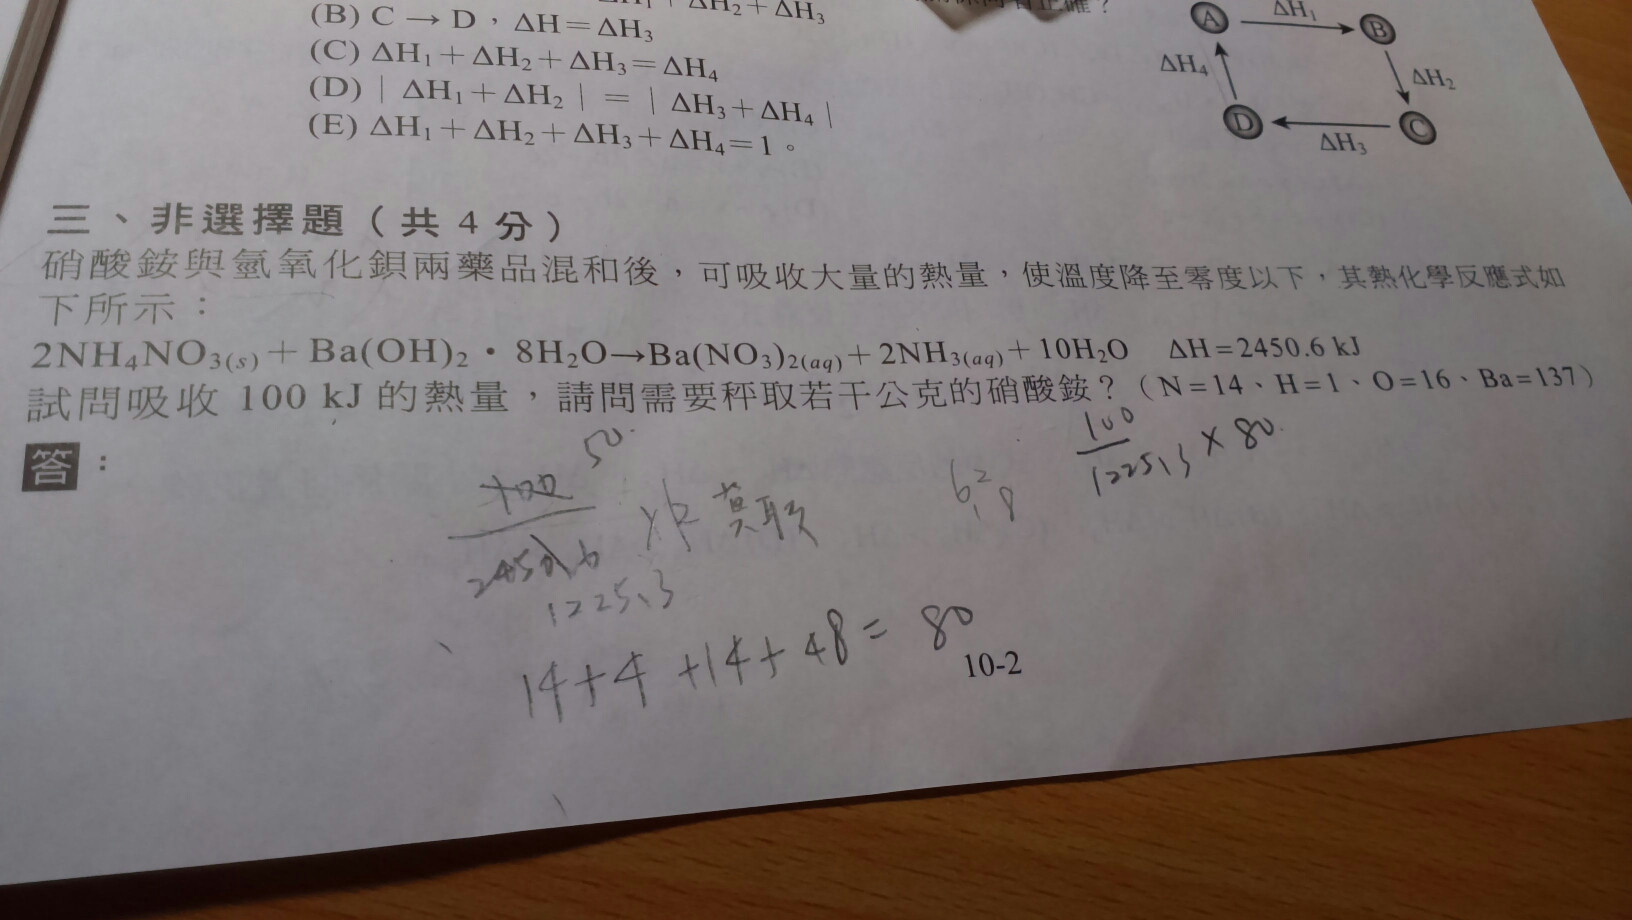 ΔH₂+ΔH₃
(B) C → D，ΔH=ΔH₃
(C) ΔH₁+ΔH₂+ΔH₃=ΔH₄
(D)｜ΔH₁+ΔH₂｜=｜ΔH₃+ΔH₄｜
(E) ΔH₁+ΔH₂+ΔH₃+ΔH₄=1。
A ΔH₁ B
ΔH₄ ΔH₂
D ΔH₃ C
三、非選擇題（共 4 分）
硝酸銨與氫氧化鋇兩藥品混和後，可吸收大量的熱量，使溫度降至零度以下，其熱化學反應式如
下所示：
2NH₄NO₃(s)+Ba(OH)₂・8H₂O→Ba(NO₃)₂(aq)+2NH₃(aq)+10H₂O ΔH=2450.6 kJ
試問吸收 100 kJ 的熱量，請問需要秤取若干公克的硝酸銨？（N=14、H=1、O=16、Ba=137）
答：
50
100
1225.3
莫耳
100
1225.3 × 80
14+4+14+48=80
10-2